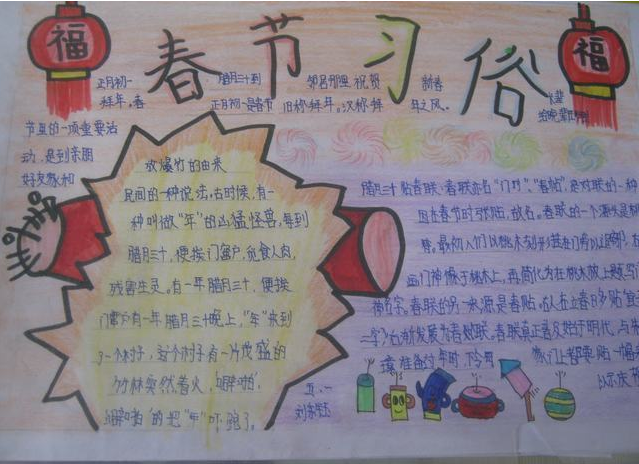 福
春节习俗
福
正月初一 腊月三十到 邻居 祝贺 新春
拜年。春 正月初一是春节 旧称拜年。汉称拜 年之风。
给晚辈
节里的一项重要活
动,是到亲朋
好友家和
放爆竹的由来
民间的一种说法,古时候,有一
种叫做“年”的凶猛怪兽,每到
腊月三十,便挨门窜户,觅食人肉,
残害生灵。有一年腊月三十,便挨
门窜户有一年腊月三十晚上,“年”来到
了一个村子,这个村子有一片茂盛的
竹林突然着火,噼啪
的把“年”吓跑了。
腊月三十贴春联,春联亦名“门对”、“春帖”,是对联的一种,
因在春节时张贴,故名。春联的一个源头是桃
最初人们以桃木刻
画门神像于桃木上,再简化为在桃木板上题写
春联的另一来源是春贴,古人在立春日多贴“宜
春”二字,后渐渐发展为春联,春联真正普及始于明代,与
我们上都要贴一幅
以示庆
五、一